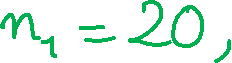 n₁ = 20,